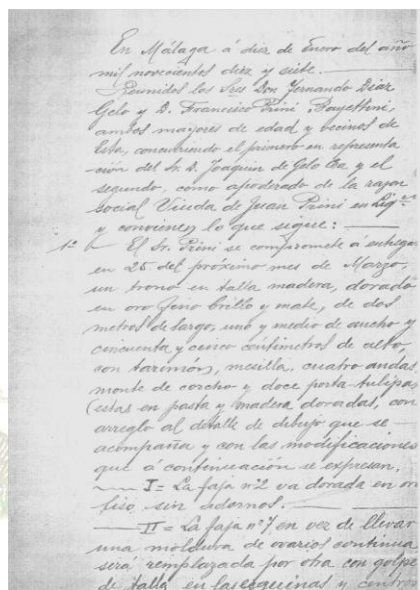 En Málaga á diez de Enero del año
mil novecientos diez y siete.
Reunidos los Sres Don Fernando Diaz
Gelo y D. Francisco Prini Bayettini,
ambos mayores de edad y vecinos de
ésta, concurriendo el primero en representa
ción del Sr. D. Joaquin de Gelo Cea y el
segundo, como apoderado de la razon
social Viuda de Juan Prini en
y convienen lo que sigue:
1ª El Sr. Prini se compromete á entregar
en 25 del próximo mes de Marzo,
un trono en talla madera, dorado
en oro fino brillo y mate, de dos
metros de largo, uno y medio de ancho y
cincuenta y cinco centímetros de alto,
con tarimón, mesilla, cuatro andas,
monte de corcho y doce porta tulipas
(estas en pasta y madera doradas, con
arreglo al detalle de dibujo que se
acompaña y con las modificaciones
que á continuación se expresan.
I= La faja nº 2 va dorada en oro
liso, sin adornos.
II= La faja nº 7 en vez de llevar
una moldura de ovarios continua
será remplazada por otra con golpe
de talla en las esquinas y centros